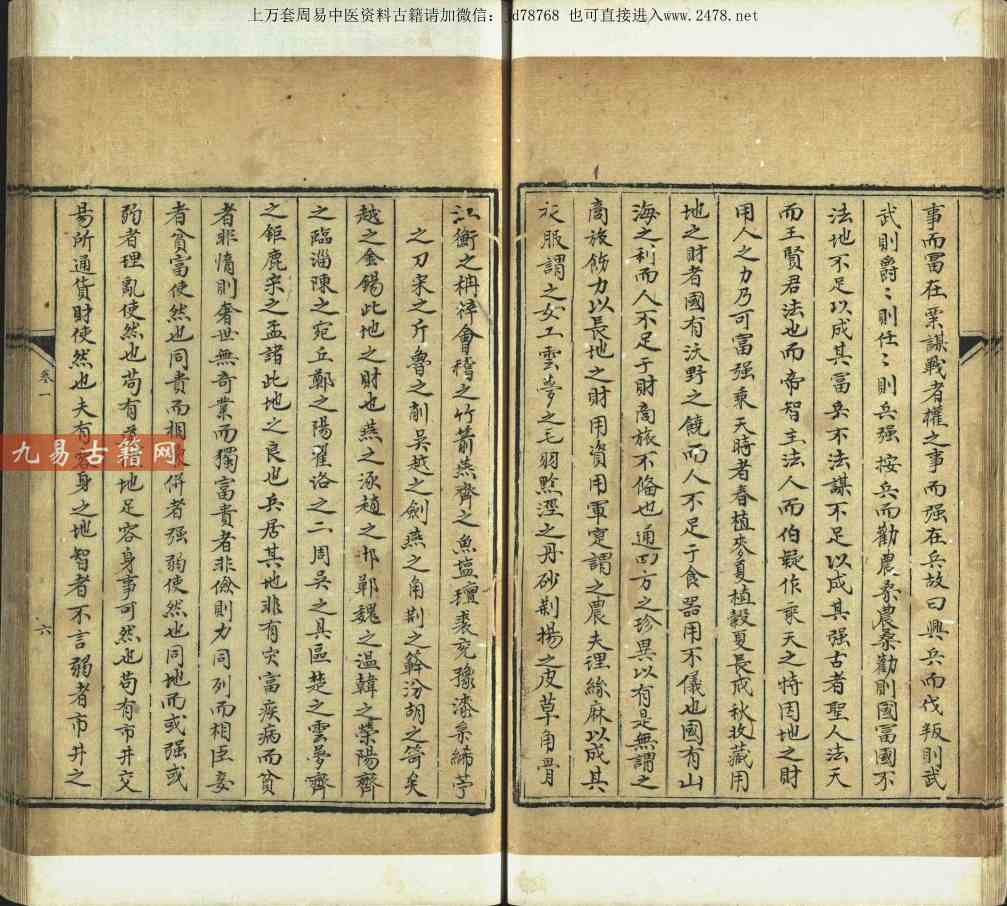 上万套周易中医资料古籍请加微信：jd78768 也可直接进入www.2478.net
事而冨在粟謀戰者權之事而强在兵故曰興兵而伐叛則武
武則爵〻則任〻則兵强按兵而勸農桑農桑勸則國冨國不
法地不足以成其冨兵不法謀不足以成其强古者聖人法天
而王賢君法也而帝智主法人而伯疑作乘天之特因地之財
用人之力乃可富强乘天時者春植麥夏植穀夏長成秋收藏用
地之財者國有沃野之饒而人不足于食器用不儀也國有山
海之利而人不足于財商旅不俻也通四方之珍異以有是無謂之
商旅飭力以長地之財用資用軍寔謂之農夫理絲麻以成其
衣服謂之女工雲夢之毛羽黔涇之丹砂荆揚之皮草角骨
江衡之梓會稽之竹箭燕齊之魚塩氊裘兖豫漆糸絺苧
之刀宋之斤魯之削吳越之劍燕之角荆之簳汾胡之笴矣
越之金錫此地之財也燕之涿趙之邯鄲魏之温韓之滎陽齊
之臨淄陳之宛丘鄭之陽翟洛之二周吳之具區楚之雲夢齊
之鉅鹿宋之孟諸此地之良也兵居其地非有灾富疾病而貧
者非惰則奢世無奇業而獨富貴者非儉則力同列而相臣妾
者貧富使然也同貴而相併者强弱使然也同地而或强或
弱者理亂使然也苟有地足容身事可然也苟有市井交
易所通貨財使然也夫有容身之地智者不言弱者市井之
卷一
六
九易古籍网